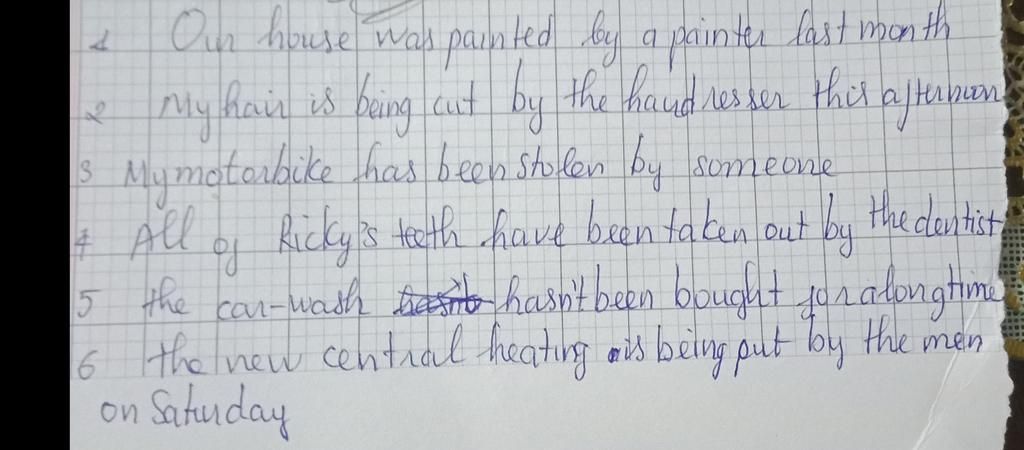 1 Our house was painted by a painter last month
2 My hair is being cut by the haudresser this afternoon
3 My motorbike has been stolen by someone
4 All of Ricky's teeth have been taken out by the dentist
5 the car-wash hasn't been bought for a long time
6 the new central heating is being put by the men
on Saturday